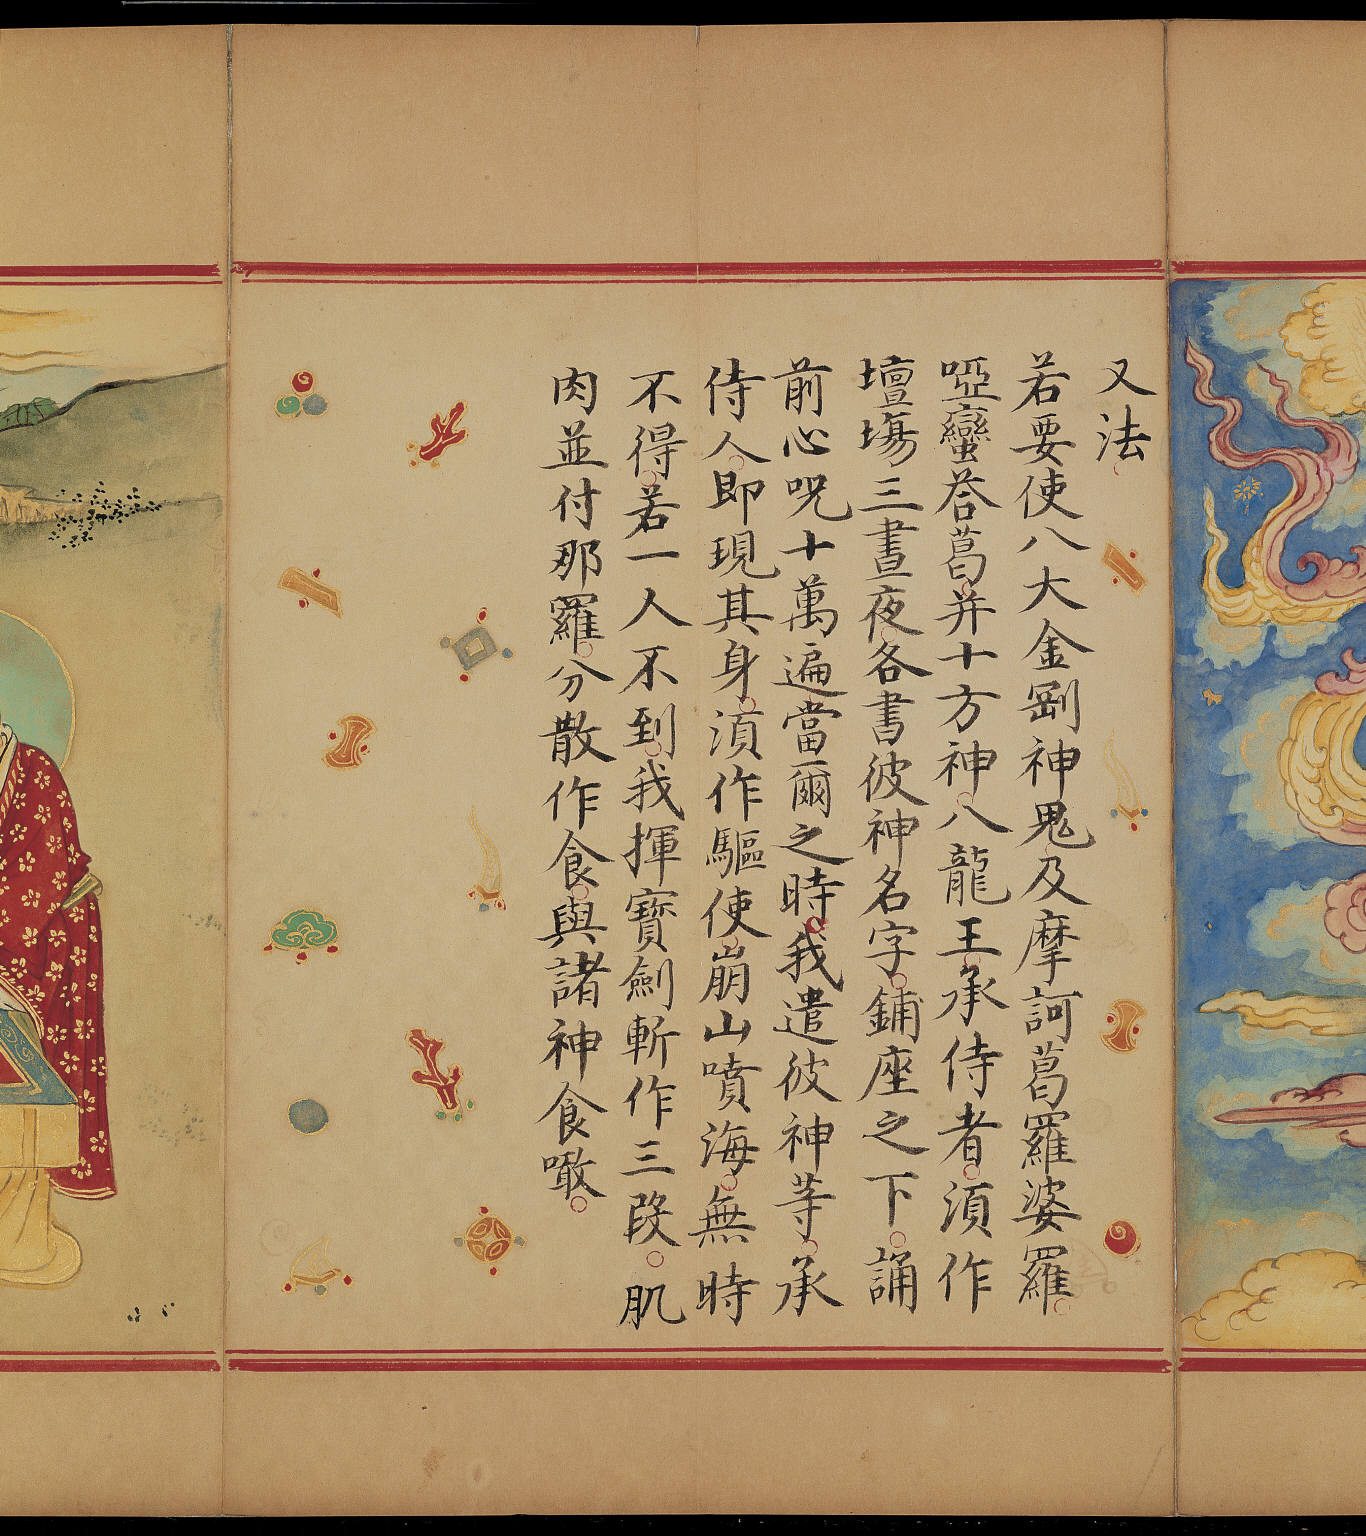 又法
若要使八大金剛神鬼及摩訶葛羅婆羅
啞蠻荅葛并十方神八龍王承侍者湏作
壇塲三晝夜各書彼神名字鋪座之下誦
前心呪十萬遍當爾之時我遣彼神等承
侍人即現其身湏作驅使崩山噴海無時
不得若一人不到我揮寶劍斬作三段肌
肉並付那羅分散作食與諸神食噉